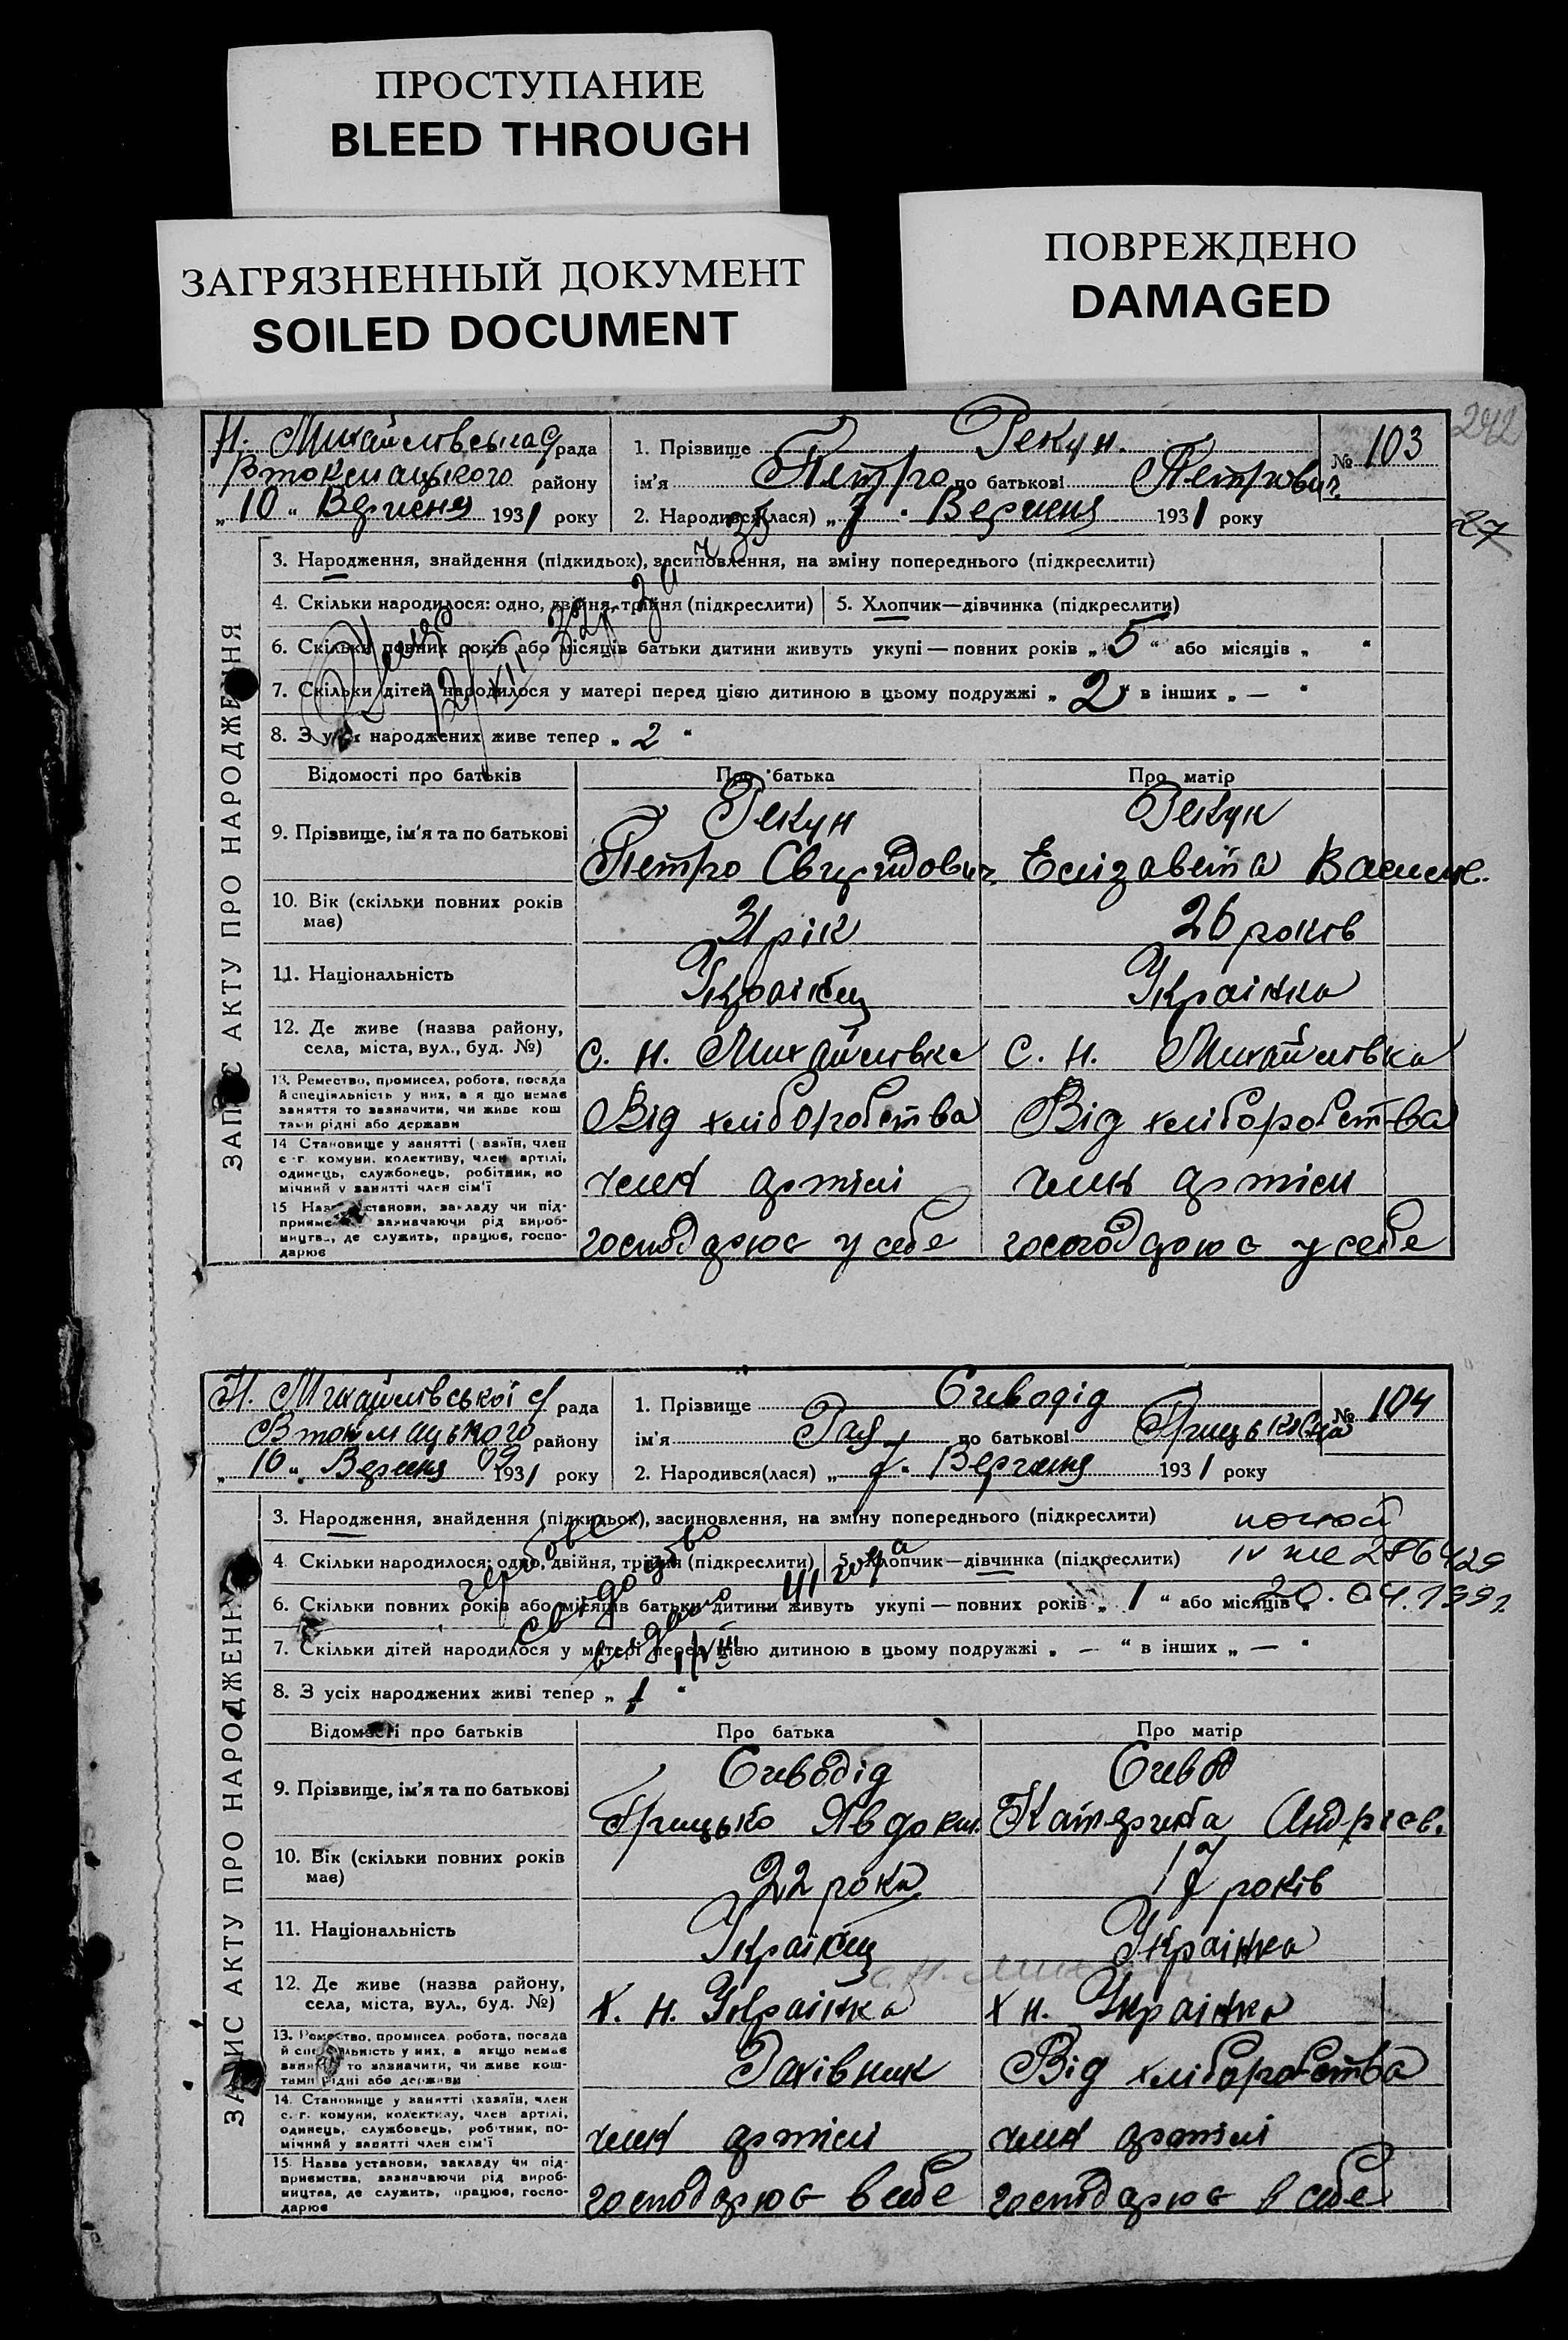 ПРОСТУПАНИЕ
BLEED THROUGH
ЗАГРЯЗНЕННЫЙ ДОКУМЕНТ
SOILED DOCUMENT
ПОВРЕЖДЕНО
DAMAGED
242
27
ЗАПИС АКТУ ПРО НАРОДЖЕННЯ
Н. Михайлівська с/рада
Втокмацького району
„10“ Вересня 1931 року
1. Прізвище Рекун.
№ 103
ім'я Петро по батькові Петрович
2. Народився(лася) „7“ Вересня 1931 року
3. Народження, знайдення (підкидьок), засиновлення, на зміну попереднього (підкреслити)
4. Скільки народилося: одно, двійня, трійня (підкреслити)
5. Хлопчик—дівчинка (підкреслити)
6. Скільки повних років або місяців батьки дитини живуть укупі — повних років „5“ або місяців „ “
7. Скільки дітей народилося у матері перед цією дитиною в цьому подружжі „2“ в інших „—“
8. З усіх народжених живе тепер „2“
Відомості про батьків
Про батька
Про матір
9. Прізвище, ім'я та по батькові
Рекун
Петро Свиридович
Рекун
Елізавета Василе.
10. Вік (скільки повних років має)
31 рік
26 років
11. Національність
Українец
Українка
12. Де живе (назва району, села, міста, вул., буд. №)
с. Н. Михайлівка
с. Н. Михайлівка
13. Ремество, промисел, робота, посада
й спеціяльність у них, а я що немає
заняття то зазначити, чи живе кош
тами рідні або держави
Від хліборобства
Від хліборобства
14 Становище у занятті (хазяїн, член
с-г. комуни, колективу, член артілі,
одинець, службовець, робітник, по
мічний у занятті член сім'ї
член артілі
член артіли
15 Назва установи, закладу чи під-
приємства, зазначаючи рід вироб-
ництва, де служить, працює, госпо-
дарює
господарює у себе
господарює у себе
ЗАПИС АКТУ ПРО НАРОДЖЕННЯ
Н. Михайлівської с/рада
Втокмацького району
„10“ Вересня 1931 року
1. Прізвище Сиводід
№ 104
ім'я Рая по батькові Грицьківна
2. Народився(лася) „7“ Вересня 1931 року
3. Народження, знайдення (підкидьок), засиновлення, на зміну попереднього (підкреслити)
4. Скільки народилося: одно, двійня, трійня (підкреслити)
5. Хлопчик—дівчинка (підкреслити)
6. Скільки повних років або місяців батьки дитини живуть укупі — повних років „1“ або місяців
7. Скільки дітей народилося у матері перед цією дитиною в цьому подружжі „—“ в інших „—“
8. З усіх народжених живі тепер „1“
Відомості про батьків
Про батька
Про матір
9. Прізвище, ім'я та по батькові
Сиводід
Грицько Явдоким.
Сивод
Катерина Андрієв.
10. Вік (скільки повних років має)
22 рока
17 років
11. Національність
Українец
Українка
12. Де живе (назва району, села, міста, вул., буд. №)
х. Н. Українка
х Н. Українка
13. Ремество, промисел робота, посада
й спеціяльність у них, а якщо немає
заняття то зазначити, чи живе кош-
тами рідні або держави
Рахівник
Від хліборобства
14. Становище у занятті (хазяїн, член
с.-г. комуни, колективу, член артілі,
одинець, службовець, робітник, по-
мічний у занятті член сім'ї
член артілі
член артілі
15. Назва установи, закладу чи під-
приємства, зазначаючи рід вироб-
ництва, де служить, працює, госпо-
дарює
господарює в себе
господарює в себе